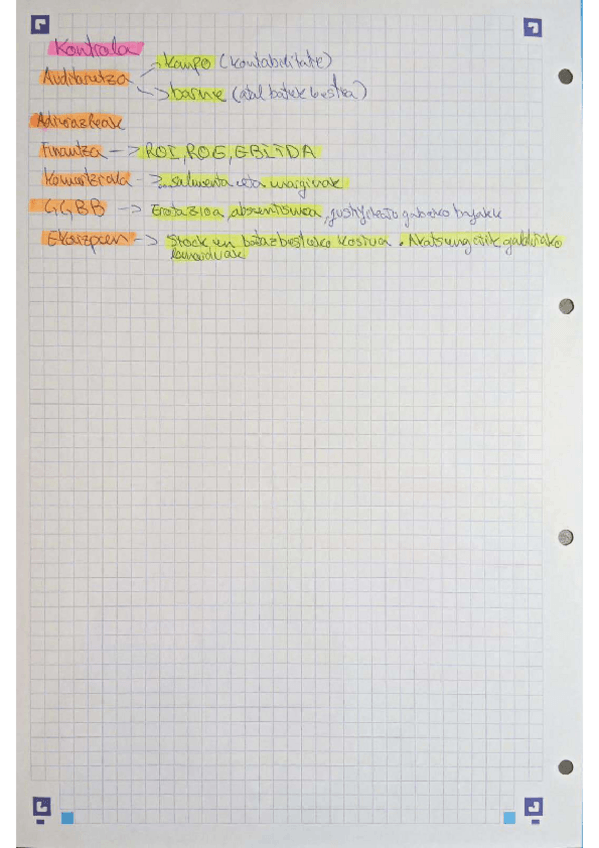 Kontrola
Auditoretza -> kanpo (kontabilitate)
-> barne (atal batek bestea)
Adierazleak
Finantza -> ROI, ROE, EBITDA
Komertziala -> salmenta eta marginak
GGBB -> Errotazioa, absentismoa, justifikatu gabeko
Ekoizpen -> Stock en batazbesteko kostua.